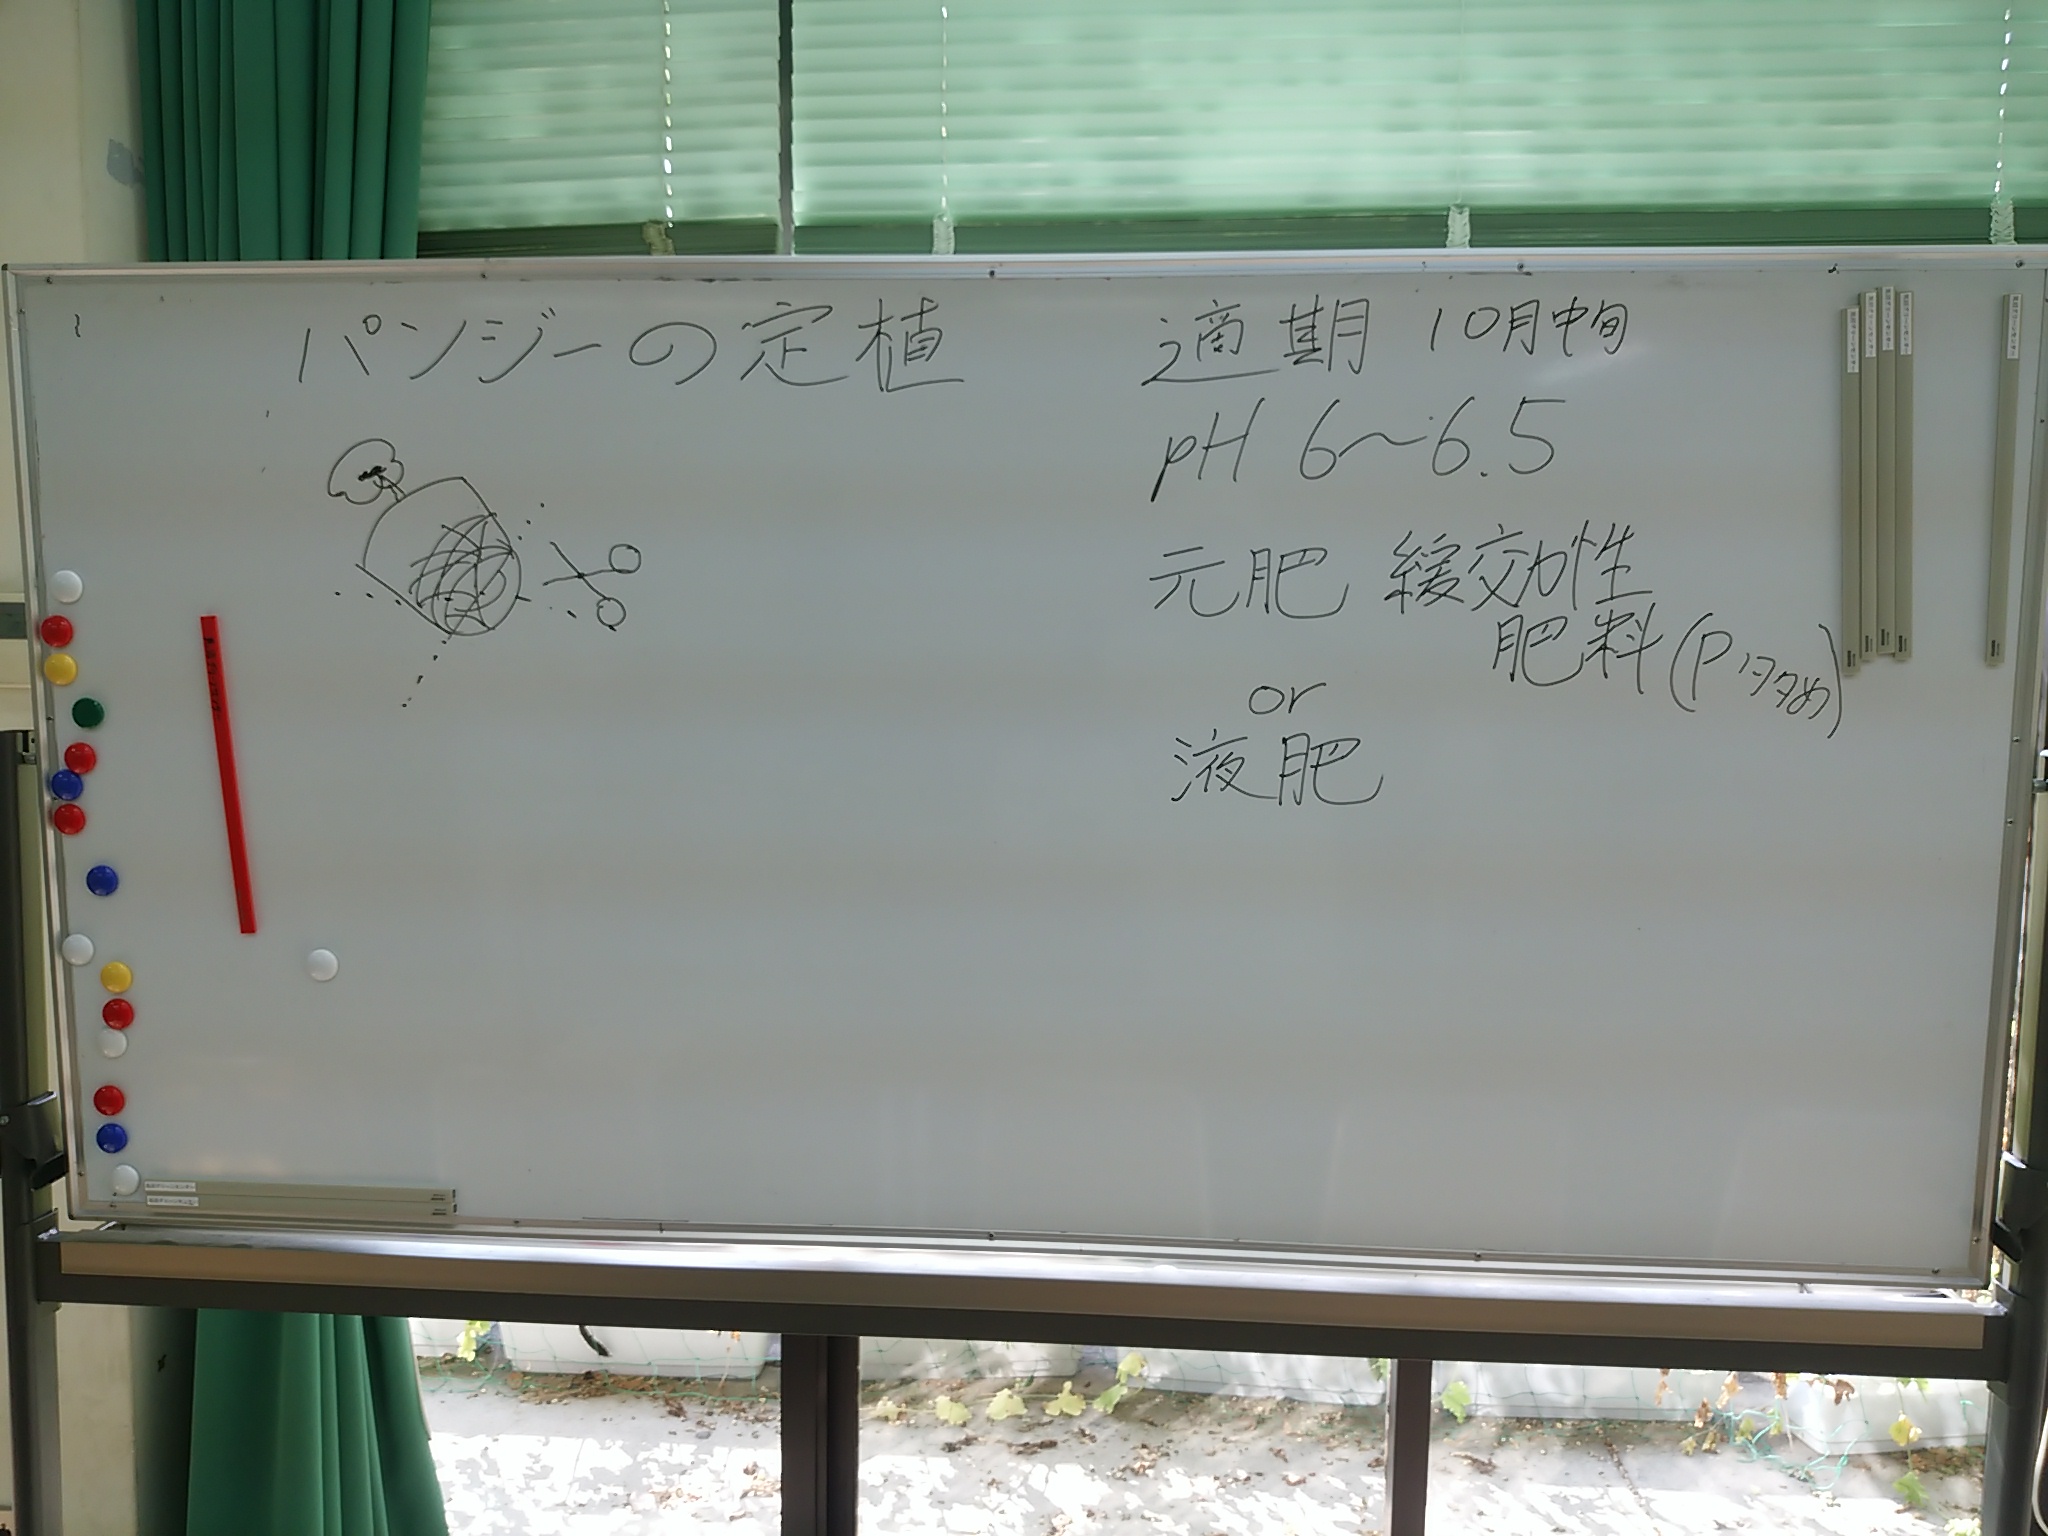 パンジーの定植
適期 10月中旬
pH 6〜6.5
元肥 緩効性
肥料(P多め)
or
液肥